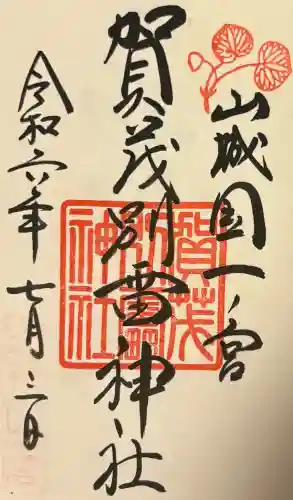 山城国一ノ宮
賀茂別雷神社
令和六年七月三日
賀茂
別雷
神社